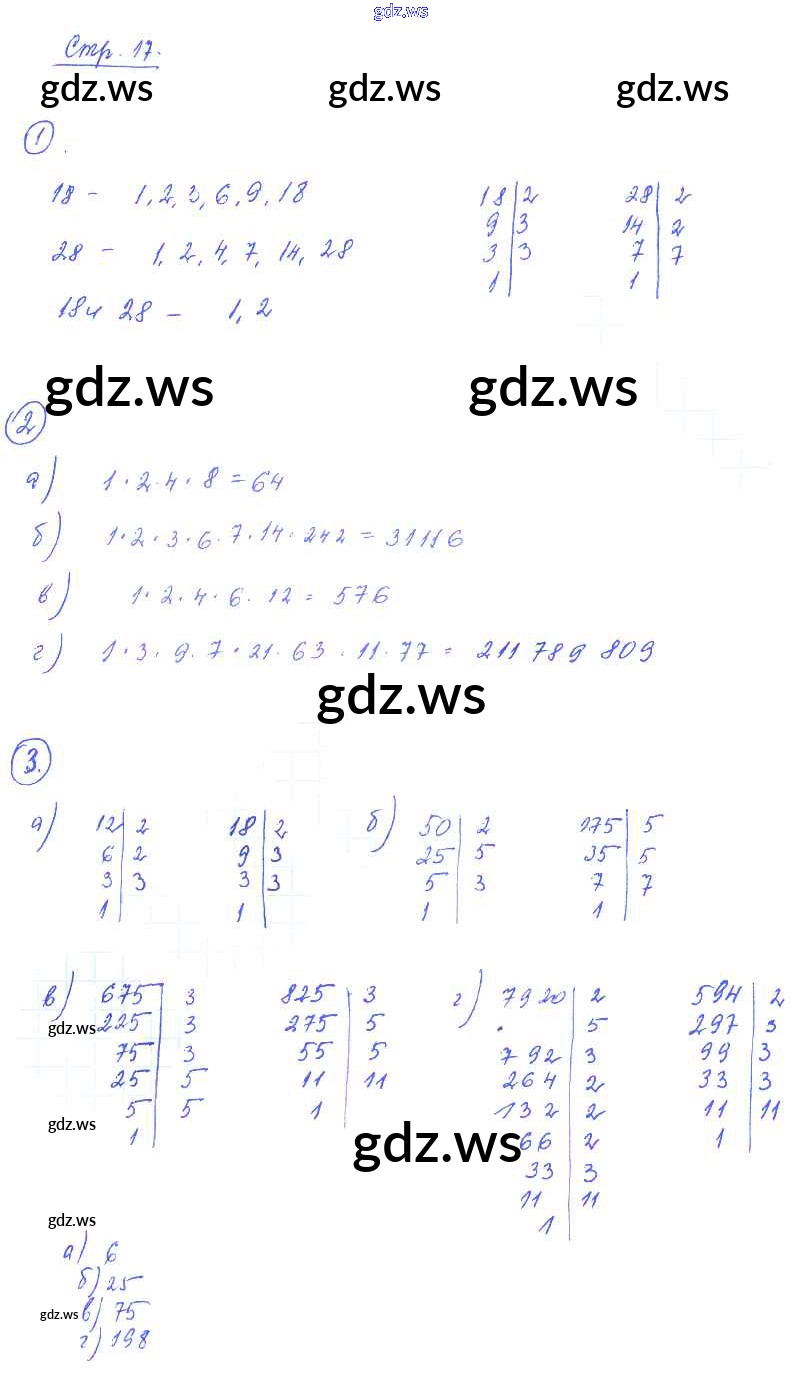 gdz.ws
Стр. 17.
gdz.ws gdz.ws gdz.ws
1.
18 - 1, 2, 3, 6, 9, 18
28 - 1, 2, 4, 7, 14, 28
18 и 28 - 1, 2
18 | 2
9 | 3
3 | 3
1
28 | 2
14 | 2
7 | 7
1
gdz.ws gdz.ws
2
а) 1·2·4·8=64
б) 1·2·3·6·7·14·242=31116
в) 1·2·4·6·12=576
г) 1·3·9·7·21·63·11·77=211 789 809
gdz.ws
3.
а)
12 | 2
6 | 2
3 | 3
1
18 | 2
9 | 3
3 | 3
1
б)
50 | 2
25 | 5
5 | 3
1
175 | 5
35 | 5
7 | 7
1
в)
675 | 3
gdz.ws
225 | 3
75 | 3
25 | 5
5 | 5
gdz.ws
1
825 | 3
275 | 5
55 | 5
11 | 11
1
г)
7920 | 2
5
792 | 3
264 | 2
132 | 2
gdz.ws
66 | 2
33 | 3
11 | 11
1
594 | 2
297 | 3
99 | 3
33 | 3
11 | 11
1
gdz.ws
а) 6
б) 25
gdz.ws
в) 75
г) 198